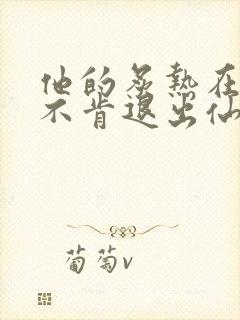 他的炙熱在
不肯退出仙
葡萄v